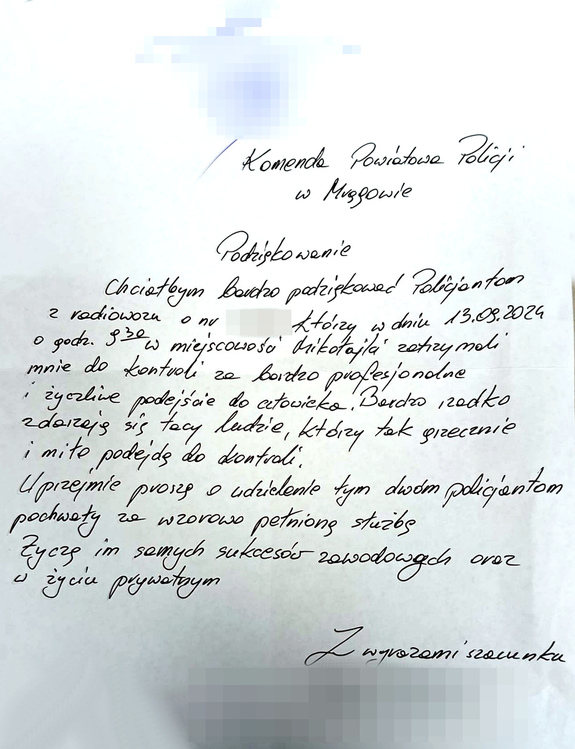 Komenda Powiatowa Policji
w Mrągowie
Podziękowanie
Chciałbym bardzo podziękować Policjantom
z radiowozu o nr którzy w dniu 13.09.2024
o godz. 9 30 w miejscowość Mikołajki zatrzymali
mnie do kontroli za bardzo profesjonalne
i życzliwe podejście do człowieka. Bardzo rzadko
zdarzają się tacy ludzie, którzy tak grzecznie
i miło podejdą do kontroli.
Uprzejmie proszę o udzielenie tym dwóm policjantom
pochwały za wzorowo pełnioną służbę
Życzę im samych sukcesów zawodowych oraz
w życiu prywatnym
Z wyrazami szacunku